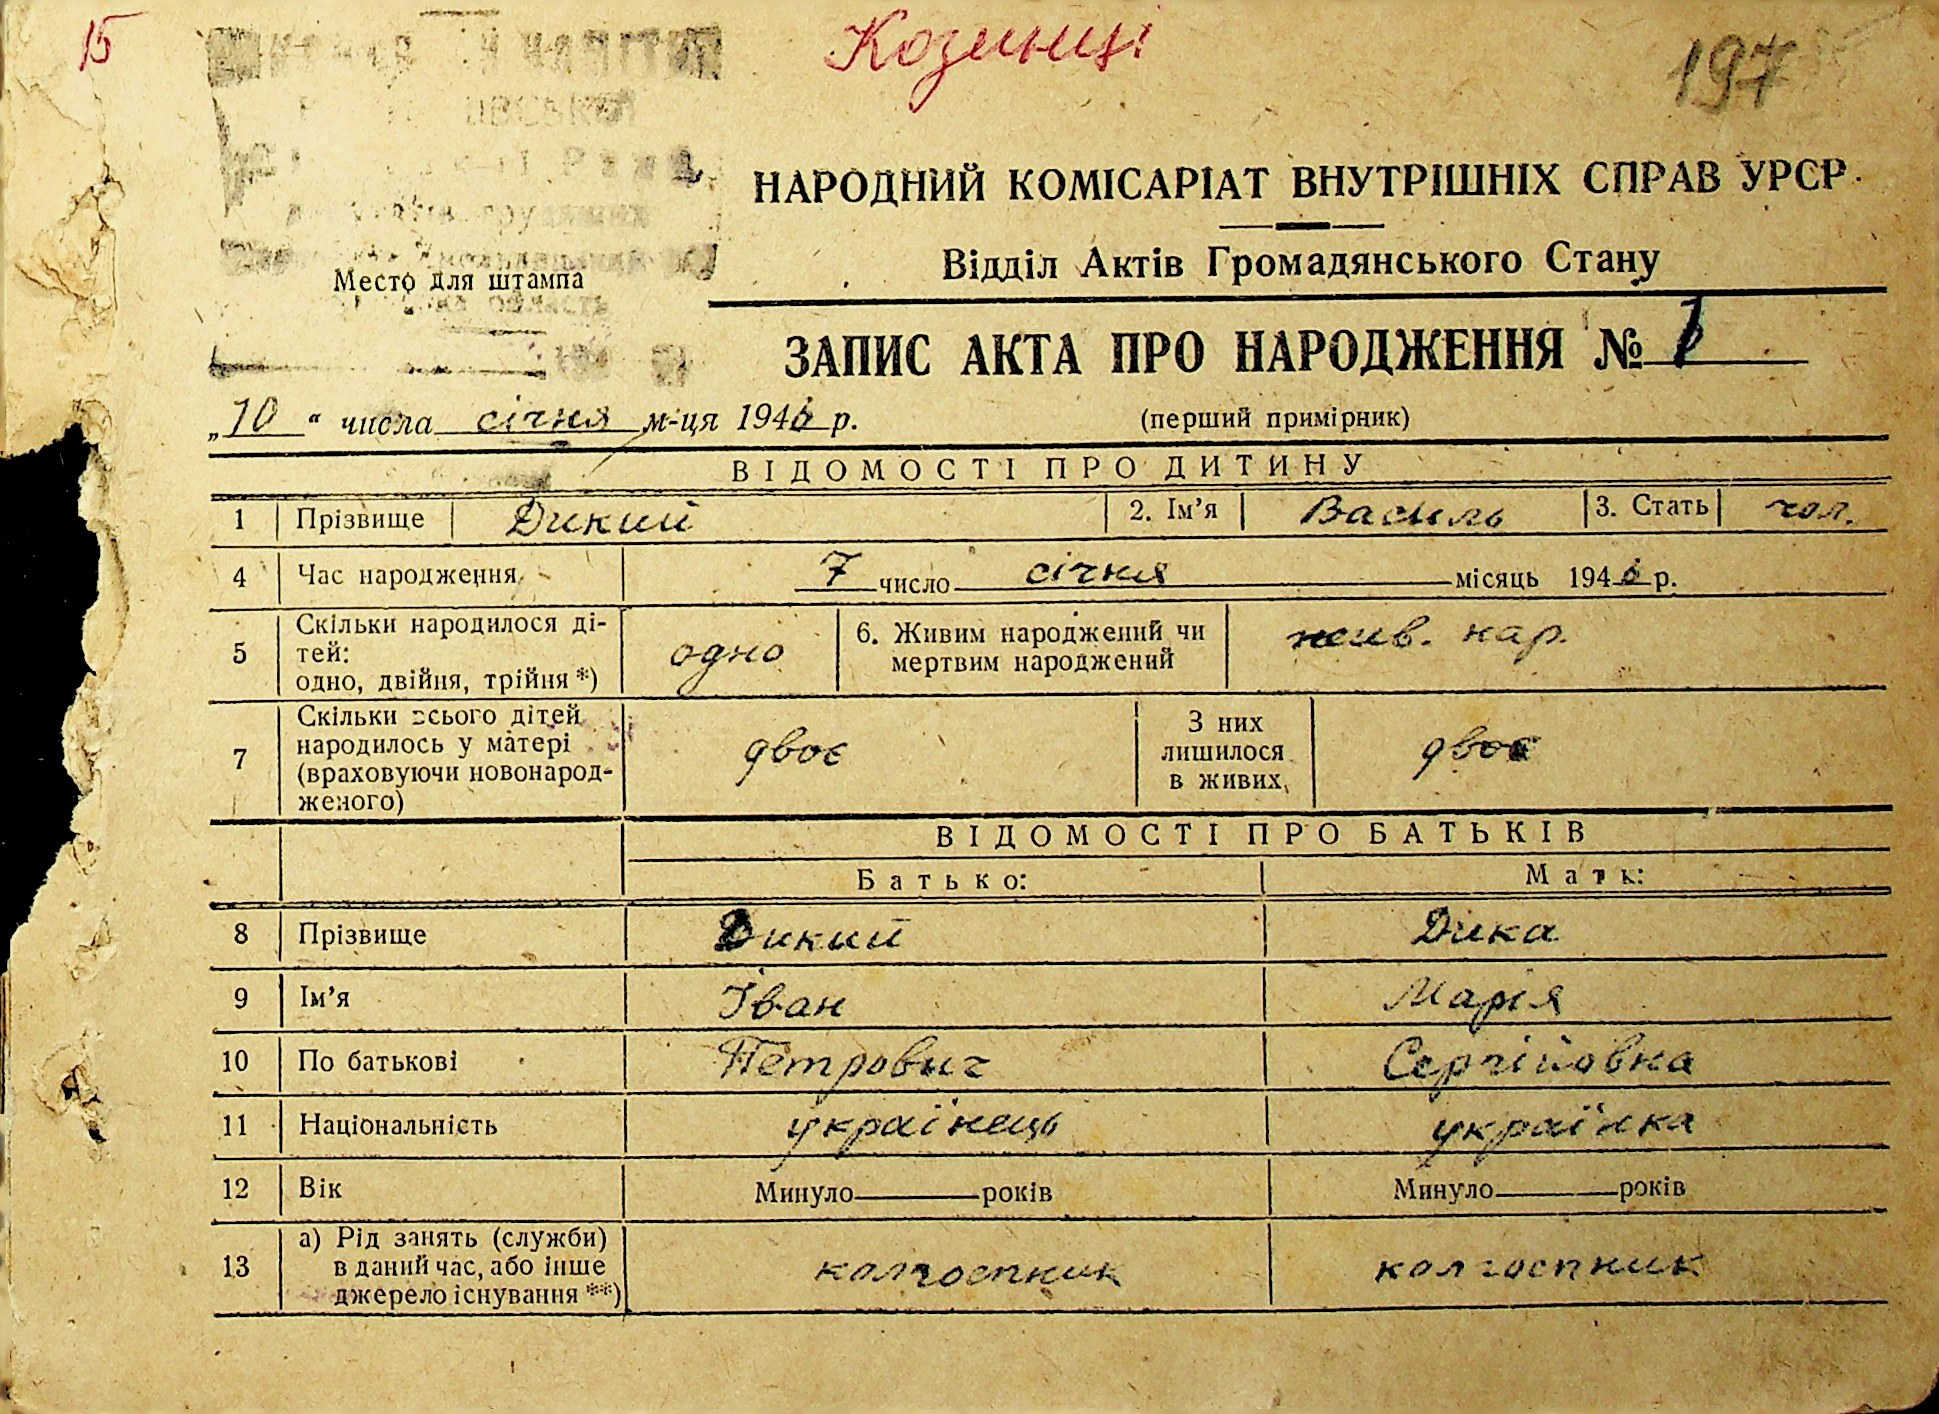 15
Козинці
197
НАРОДНИЙ КОМІСАРІАТ ВНУТРІШНІХ СПРАВ УРСР
Відділ Актів Громадянського Стану
Место для штампа
ЗАПИС АКТА ПРО НАРОДЖЕННЯ № 1
„10“ числа січня м-ця 1946 р.
(перший примірник)
ВІДОМОСТІ ПРО ДИТИНУ
1 Прізвище Дикий 2. Ім’я Василь 3. Стать чол.
4 Час народження 7 число січня місяць 1946 р.
5 Скільки народилося ді-
тей:
одно, двійня, трійня *) одно 6. Живим народжений чи
мертвим народжений жив. нар.
7 Скільки всього дітей
народилось у матері
(враховуючи новонарод-
женого) двоє З них
лишилося
в живих двоє
ВІДОМОСТІ ПРО БАТЬКІВ
Батько: Мать:
8 Прізвище Дикий Дика
9 Ім’я Іван Марія
10 По батькові Петрович Сергійовна
11 Національність українець українка
12 Вік Минуло років Минуло років
13 а) Рід занять (служби)
в даний час, або інше
джерело існування **) колгоспник колгоспник